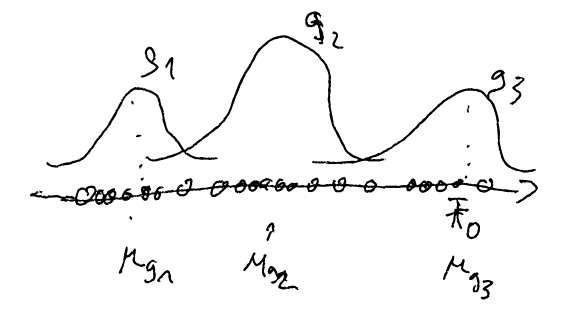 g1 g2 g3
μg1 μg2 μg3